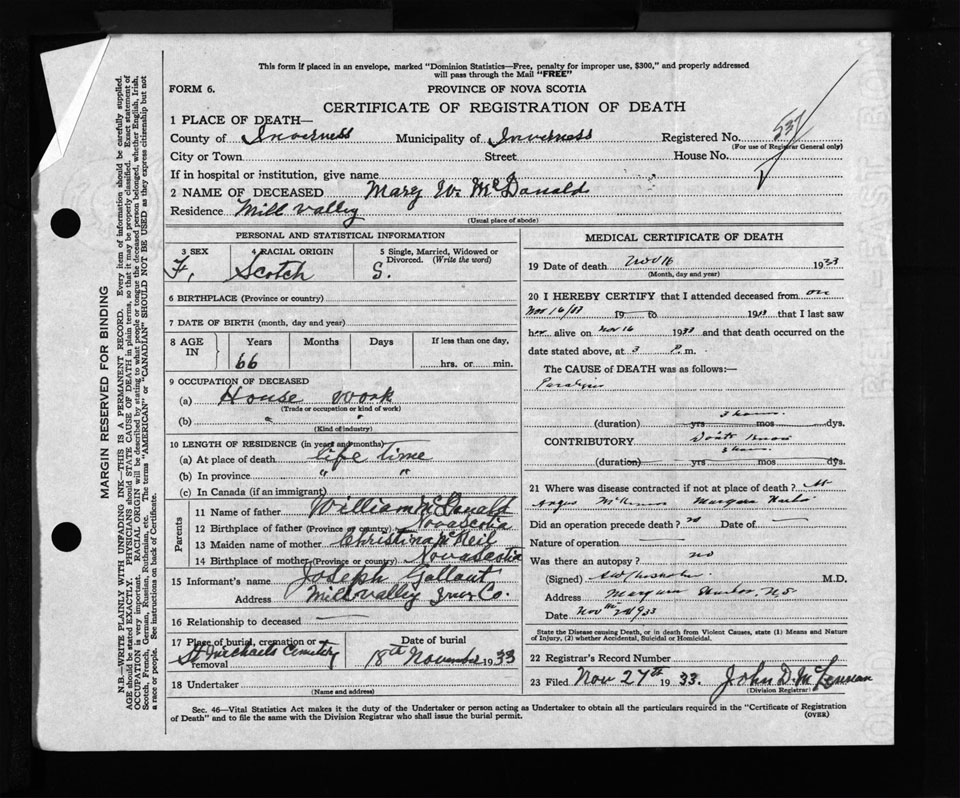 This form if placed in an envelope, marked "Dominion Statistics—Free, penalty for improper use, $300," and properly addressed
will pass through the Mail "FREE"
FORM 6.
PROVINCE OF NOVA SCOTIA
CERTIFICATE OF REGISTRATION OF DEATH
1 PLACE OF DEATH—
County of Inverness Municipality of Inverness Registered No. 537
(For use of Registrar General only)
City or Town Street House No.
If in hospital or institution, give name
2 NAME OF DECEASED Mary W. McDonald
Residence Mill Valley
(Usual place of abode)
PERSONAL AND STATISTICAL INFORMATION
3 SEX 4 RACIAL ORIGIN 5 Single, Married, Widowed or
Divorced. (Write the word)
F, Scotch S.
6 BIRTHPLACE (Province or country)
7 DATE OF BIRTH (month, day and year)
8 AGE IN Years Months Days If less than one day,
66 hrs. or min.
9 OCCUPATION OF DECEASED
(a) House work
(Trade or occupation or kind of work)
(b) " "
(Kind of industry)
10 LENGTH OF RESIDENCE (in years and months)
(a) At place of death life Time
(b) In province " "
(c) In Canada (if an immigrant)
Parents
11 Name of father William McDonald
12 Birthplace of father (Province or country) Nova scotia
13 Maiden name of mother Christina McNeil
14 Birthplace of mother (Province or country) Nova scotia
15 Informant's name Joseph Gallant
Address Mill valley Inver Co.
16 Relationship to deceased
17 Place of burial, cremation or
removal St Michaels Cemetery
Date of burial
18th November 1933
18 Undertaker
(Name and address)
MEDICAL CERTIFICATE OF DEATH
19 Date of death Nov 16 1933
(Month, day and year)
20 I HEREBY CERTIFY that I attended deceased from on
Nov 16/33 19 to 1933 that I last saw
her alive on Nov 16 1933 and that death occurred on
date stated above, at 3 P. m.
The CAUSE of DEATH was as follows:—
Paralysis
(duration) yrs mos dys.
CONTRIBUTORY Don't know
(duration) yrs mos dys.
21 Where was disease contracted if not at place of death? At
Angus Margaree Harbor
Did an operation precede death? no Date of
Nature of operation
Was there an autopsy? no
(Signed) M.D.
Address Margaree Harbor, N.S
Date
State the Disease causing Death, or in death from Violent Causes, state (1) Means and Nature
of Injury, (2) whether Accidental, Suicidal or Homicidal.
22 Registrar's Record Number
23 Filed Nov 27th 1933. John D. McLennan
(Division Registrar)
Sec. 46—Vital Statistics Act makes it the duty of the Undertaker or person acting as Undertaker to obtain all the particulars required in the "Certificate of Registration
of Death" and to file the same with the Division Registrar who shall issue the burial permit.
(OVER)
MARGIN RESERVED FOR BINDING
N.B.—WRITE PLAINLY WITH UNFADING INK—THIS IS A PERMANENT RECORD. Every item of information should be carefully supplied.
AGE should be stated EXACTLY. PHYSICIANS should STATE CAUSE OF DEATH in plain terms, so that it may be properly classified. Exact statement of
OCCUPATION is very important. RACIAL ORIGIN will be described by stating to what people or tongue the deceased person belonged, whether English, Irish,
Scotch, French, German, Russian, Ruthenian, etc. The terms "AMERICAN" or "CANADIAN" SHOULD NOT BE USED as they express citizenship but not
a race or people. See instructions on back of Certificate.